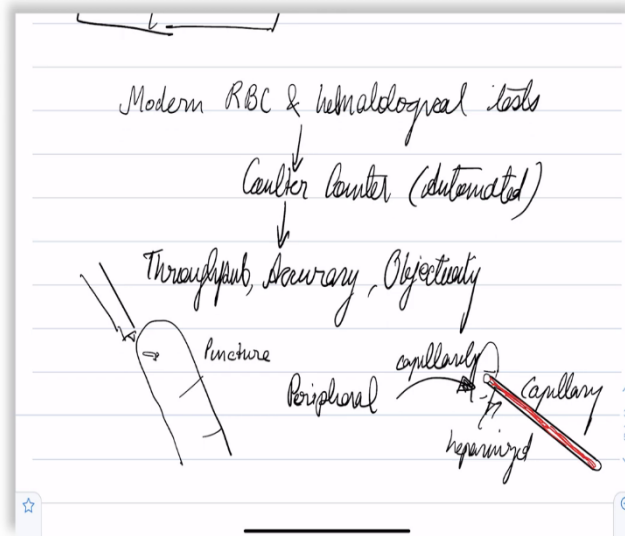 Modern RBC & hematological tests
Coulter Counter (Automated)
Throughput, Accuracy, Objectivity
Puncture
capillarely
Peripheral
Capillary
heparinized